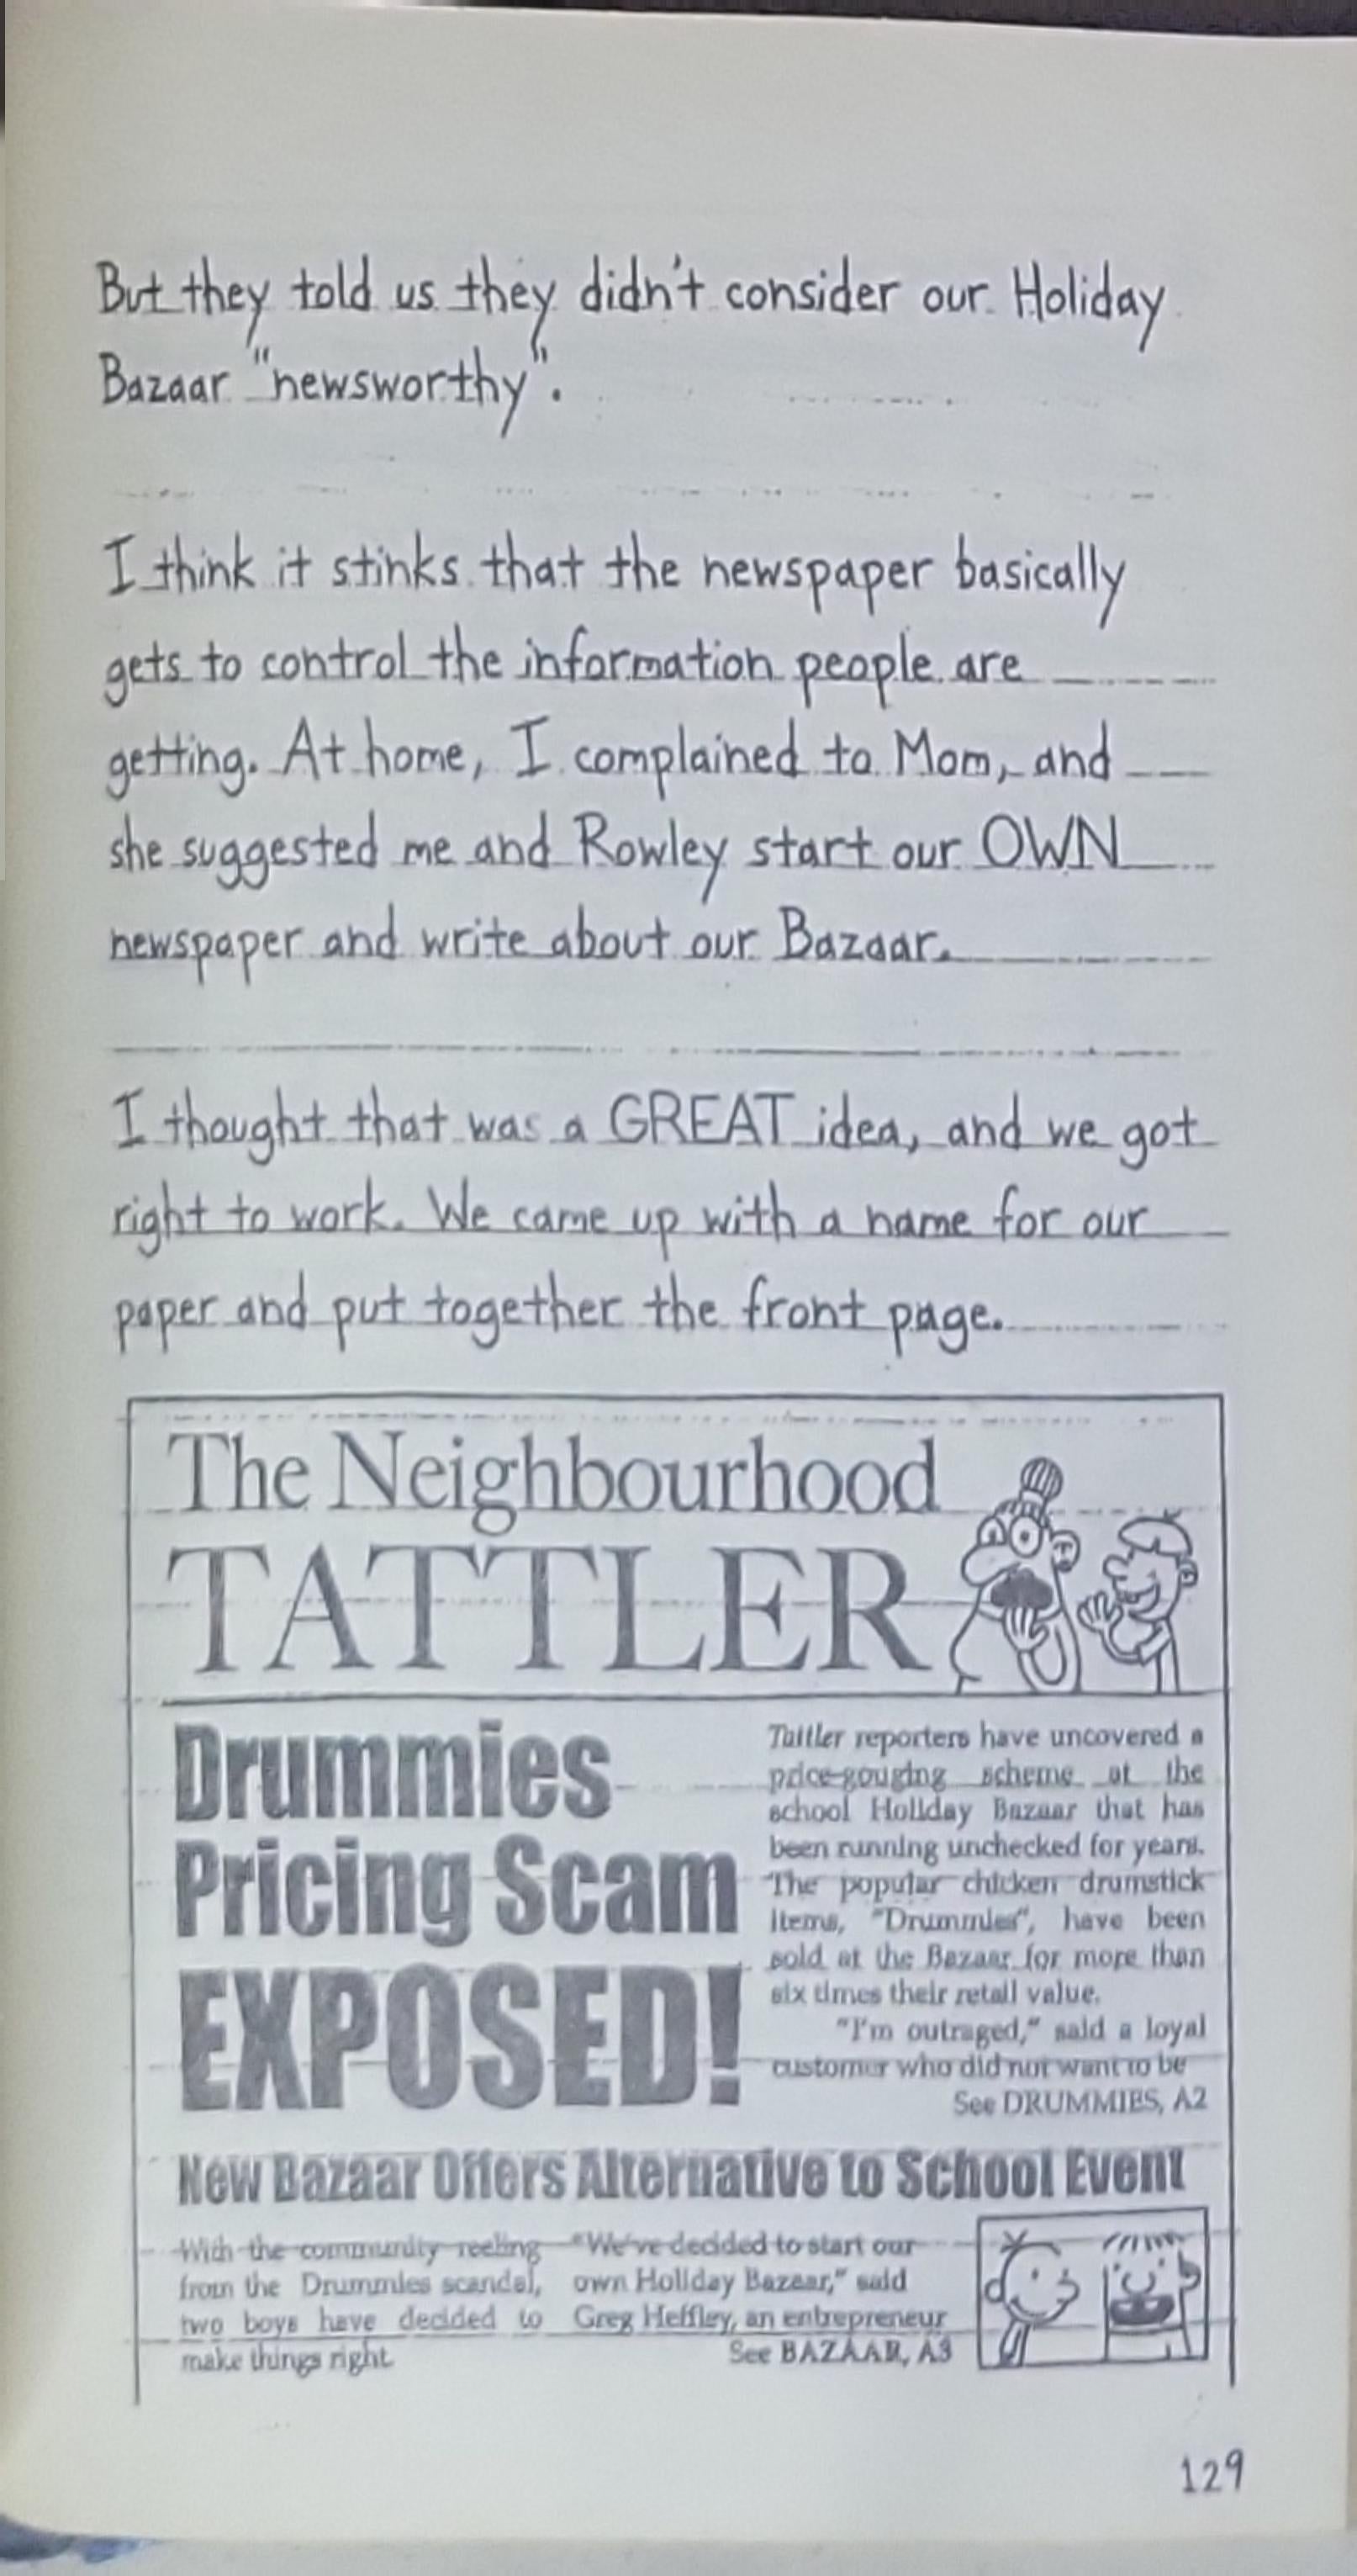 But they told us they didn't consider our Holiday
Bazaar "newsworthy".
I think it stinks that the newspaper basically
gets to control the information people are
getting. At home, I complained to Mom, and
she suggested me and Rowley start our OWN
newspaper and write about our Bazaar.
I thought that was a GREAT idea, and we got
right to work. We came up with a name for our
paper and put together the front page.
The Neighbourhood
TATTLER
Drummies
Pricing Scam
EXPOSED!
Tattler reporters have uncovered a
price-gouging scheme at the
school Holiday Bazaar that has
been running unchecked for years.
The popular chicken drumstick
items, "Drummies", have been
sold at the Bazaar for more than
six times their retail value.
"I'm outraged," said a loyal
customer who did not want to be
See DRUMMIES, A2
New Bazaar Offers Alternative to School Event
With the community reeling
from the Drummies scandal,
two boys have decided to
make things right.
"We've decided to start our
own Holiday Bazaar," said
Greg Heffley, an entrepreneur
See BAZAAR, A3
129